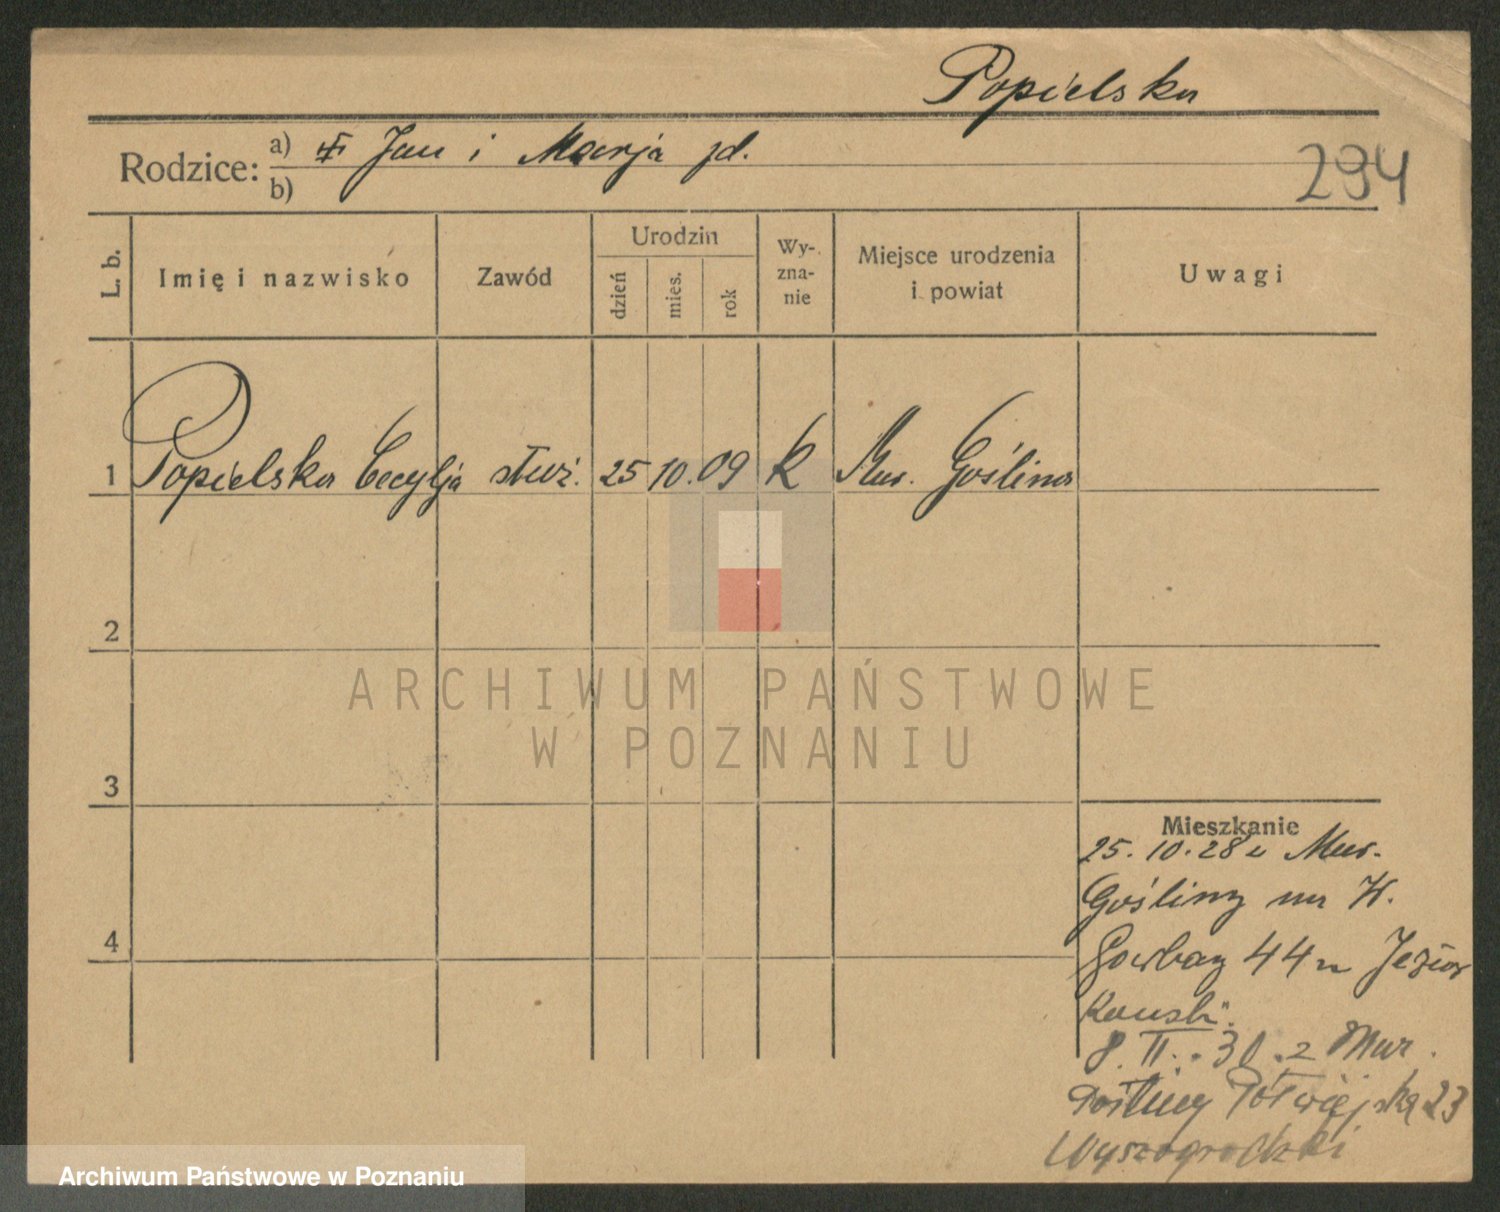 Popielska
Rodzice: a) Jan i Marja jd.
b)
294
L. b. Imię i nazwisko Zawód Urodzin dzień mies. rok Wy-zna-nie Miejsce urodzenia i powiat Uwagi
1 Popielska Cecylja służ. 25 10. 09 k Mur. Goślina
2
3
4
Mieszkanie
25. 10. 28 z Mur.
Gośliny na W.
Garbary 44 u Jezior
kowski.
8. II. 30. z Mur.
Gośliny Półwiejska 23
Wyszogrodzki
ARCHIWUM PAŃSTWOWE
W POZNANIU
Archiwum Państwowe w Poznaniu